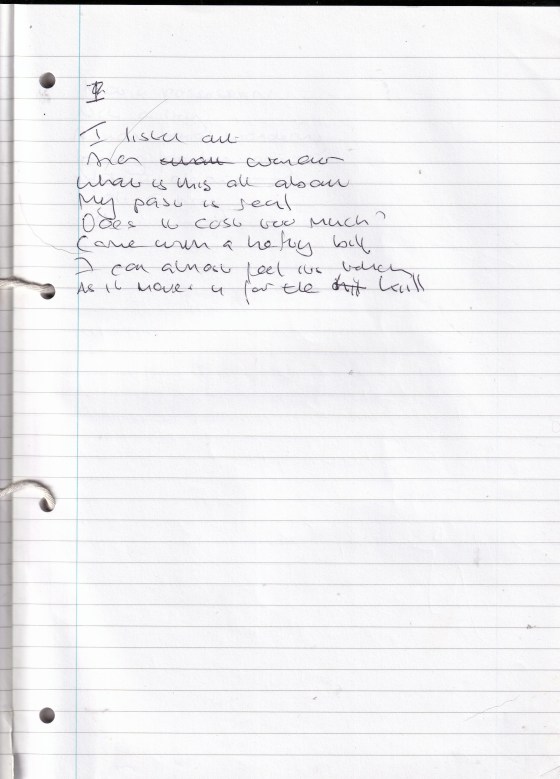 I
I listen out
And wonder
What is this all about
My past is
Does it cost too much?
Came with a hefty bill
I can almost feel its
As it moves in for the kill